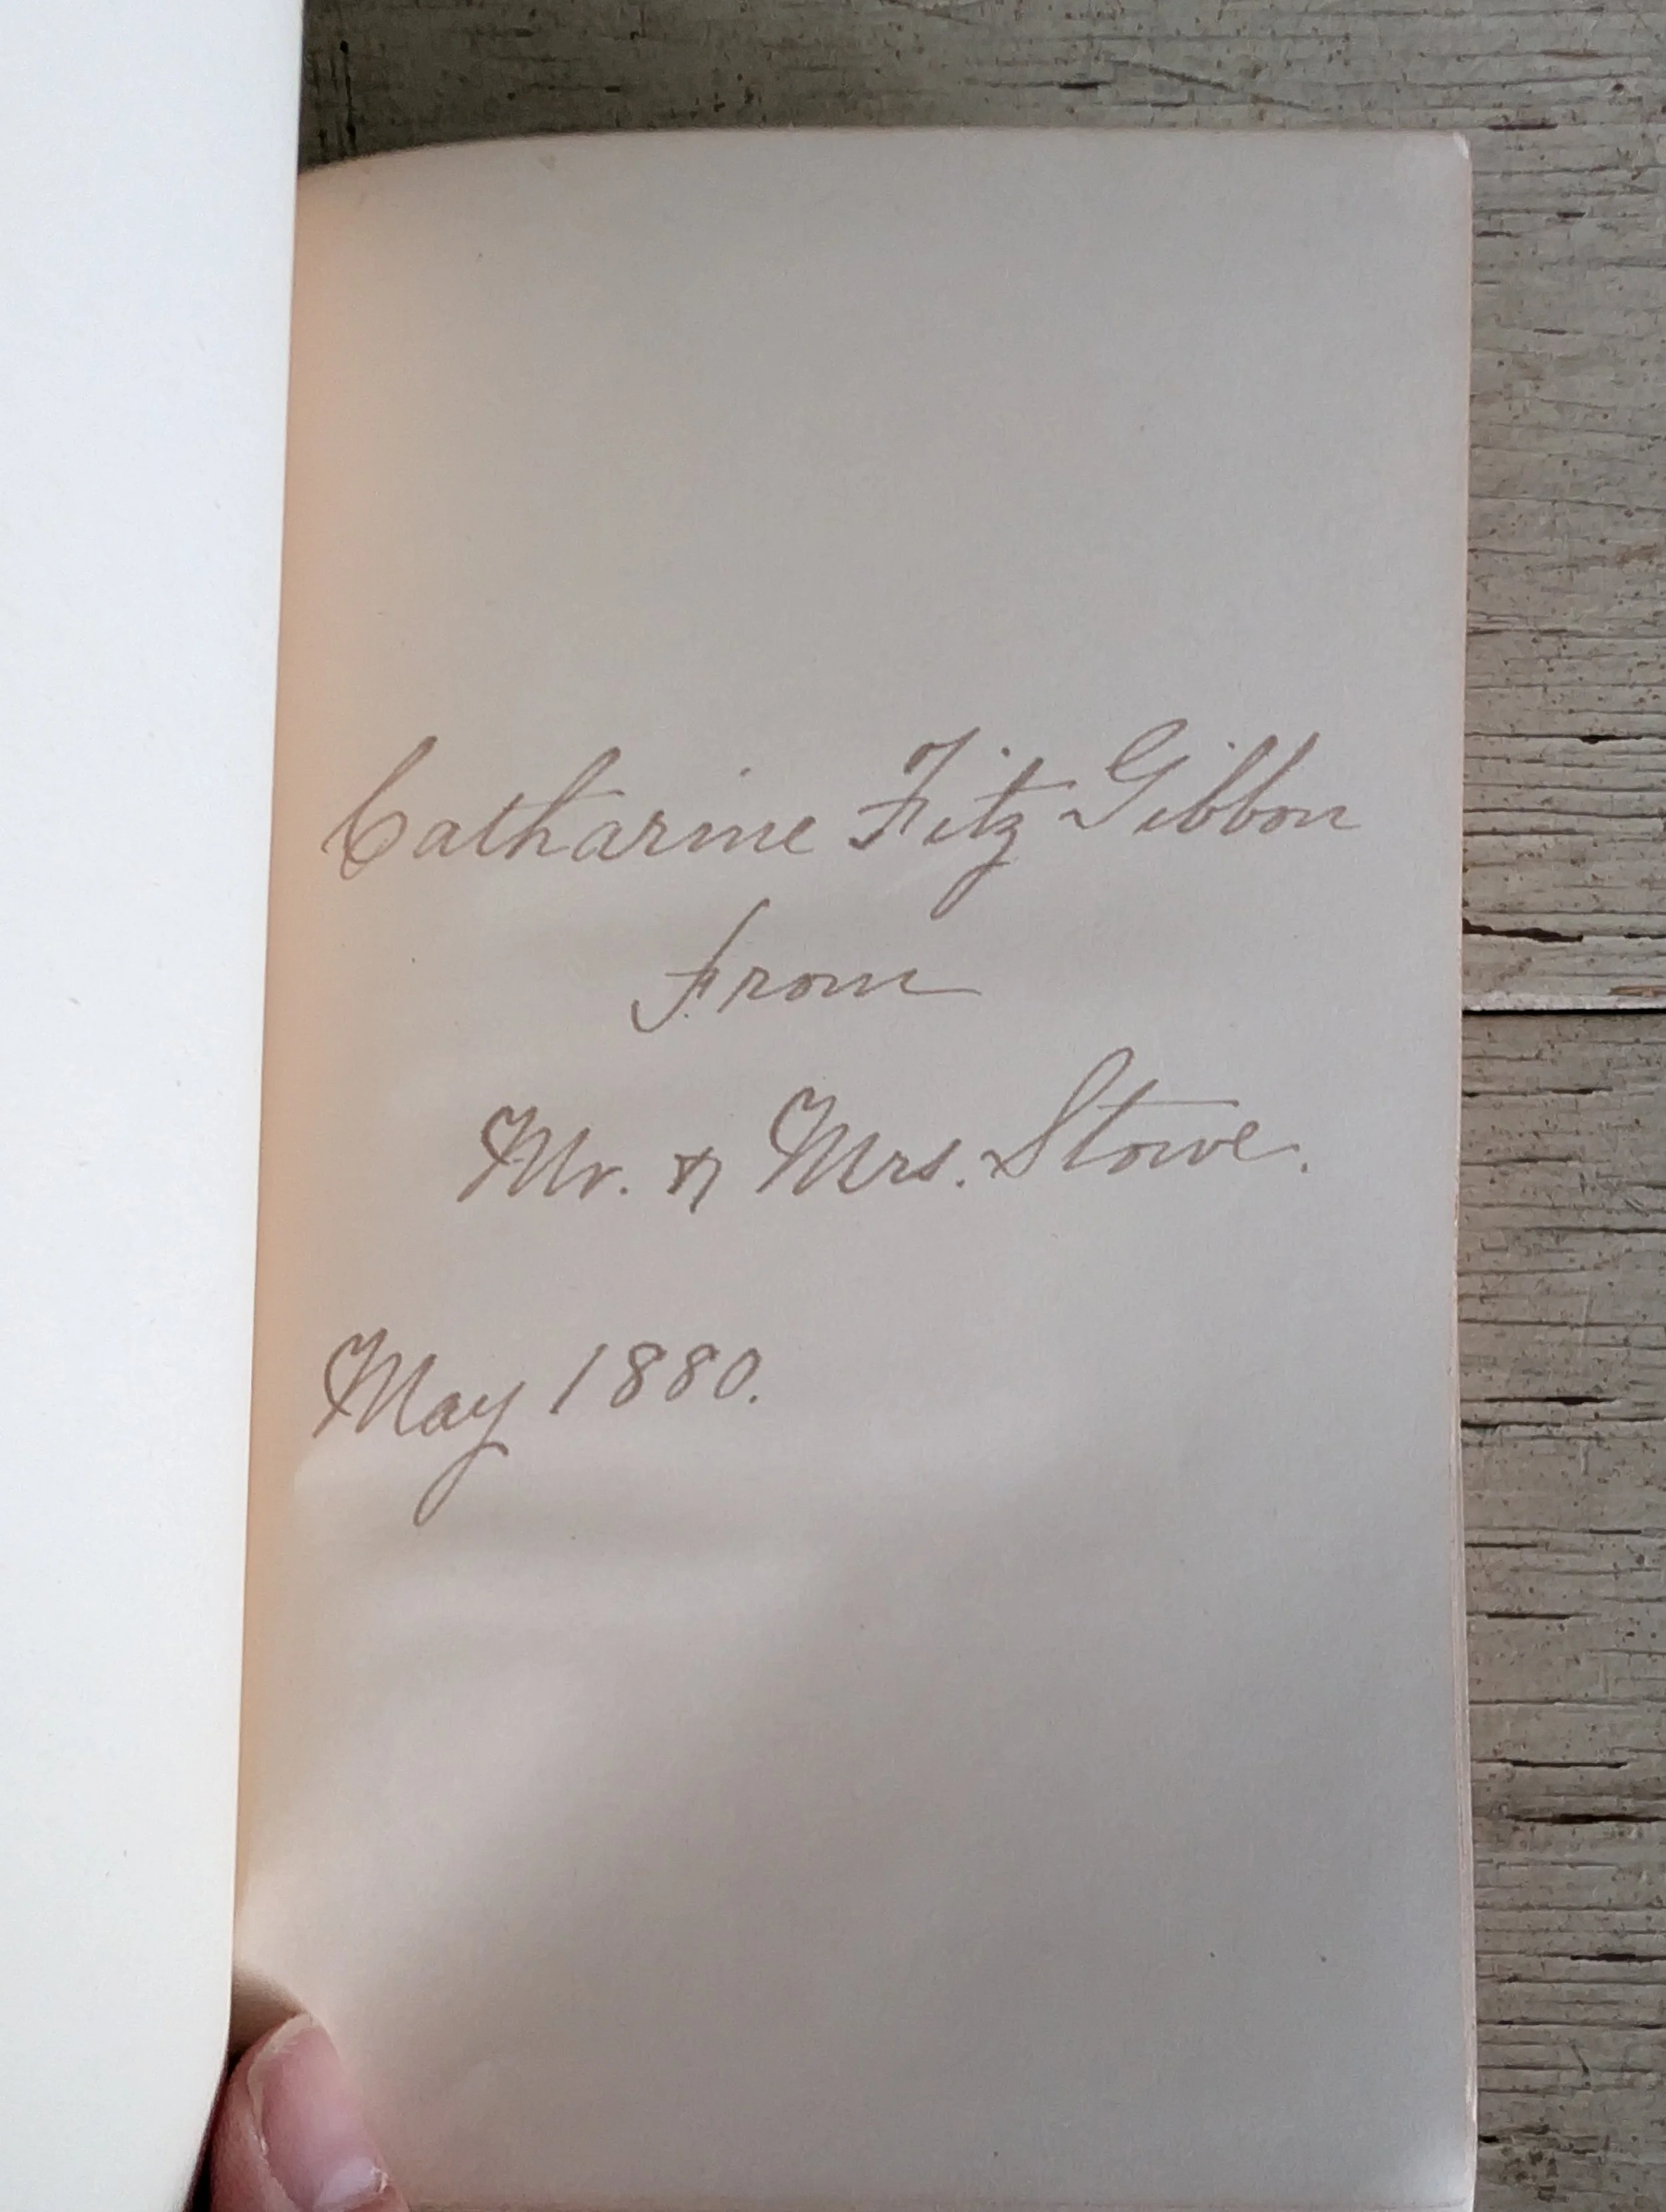 Catharine Fitz Gibbon
From
Mr. & Mrs. Stowe.
May 1880.